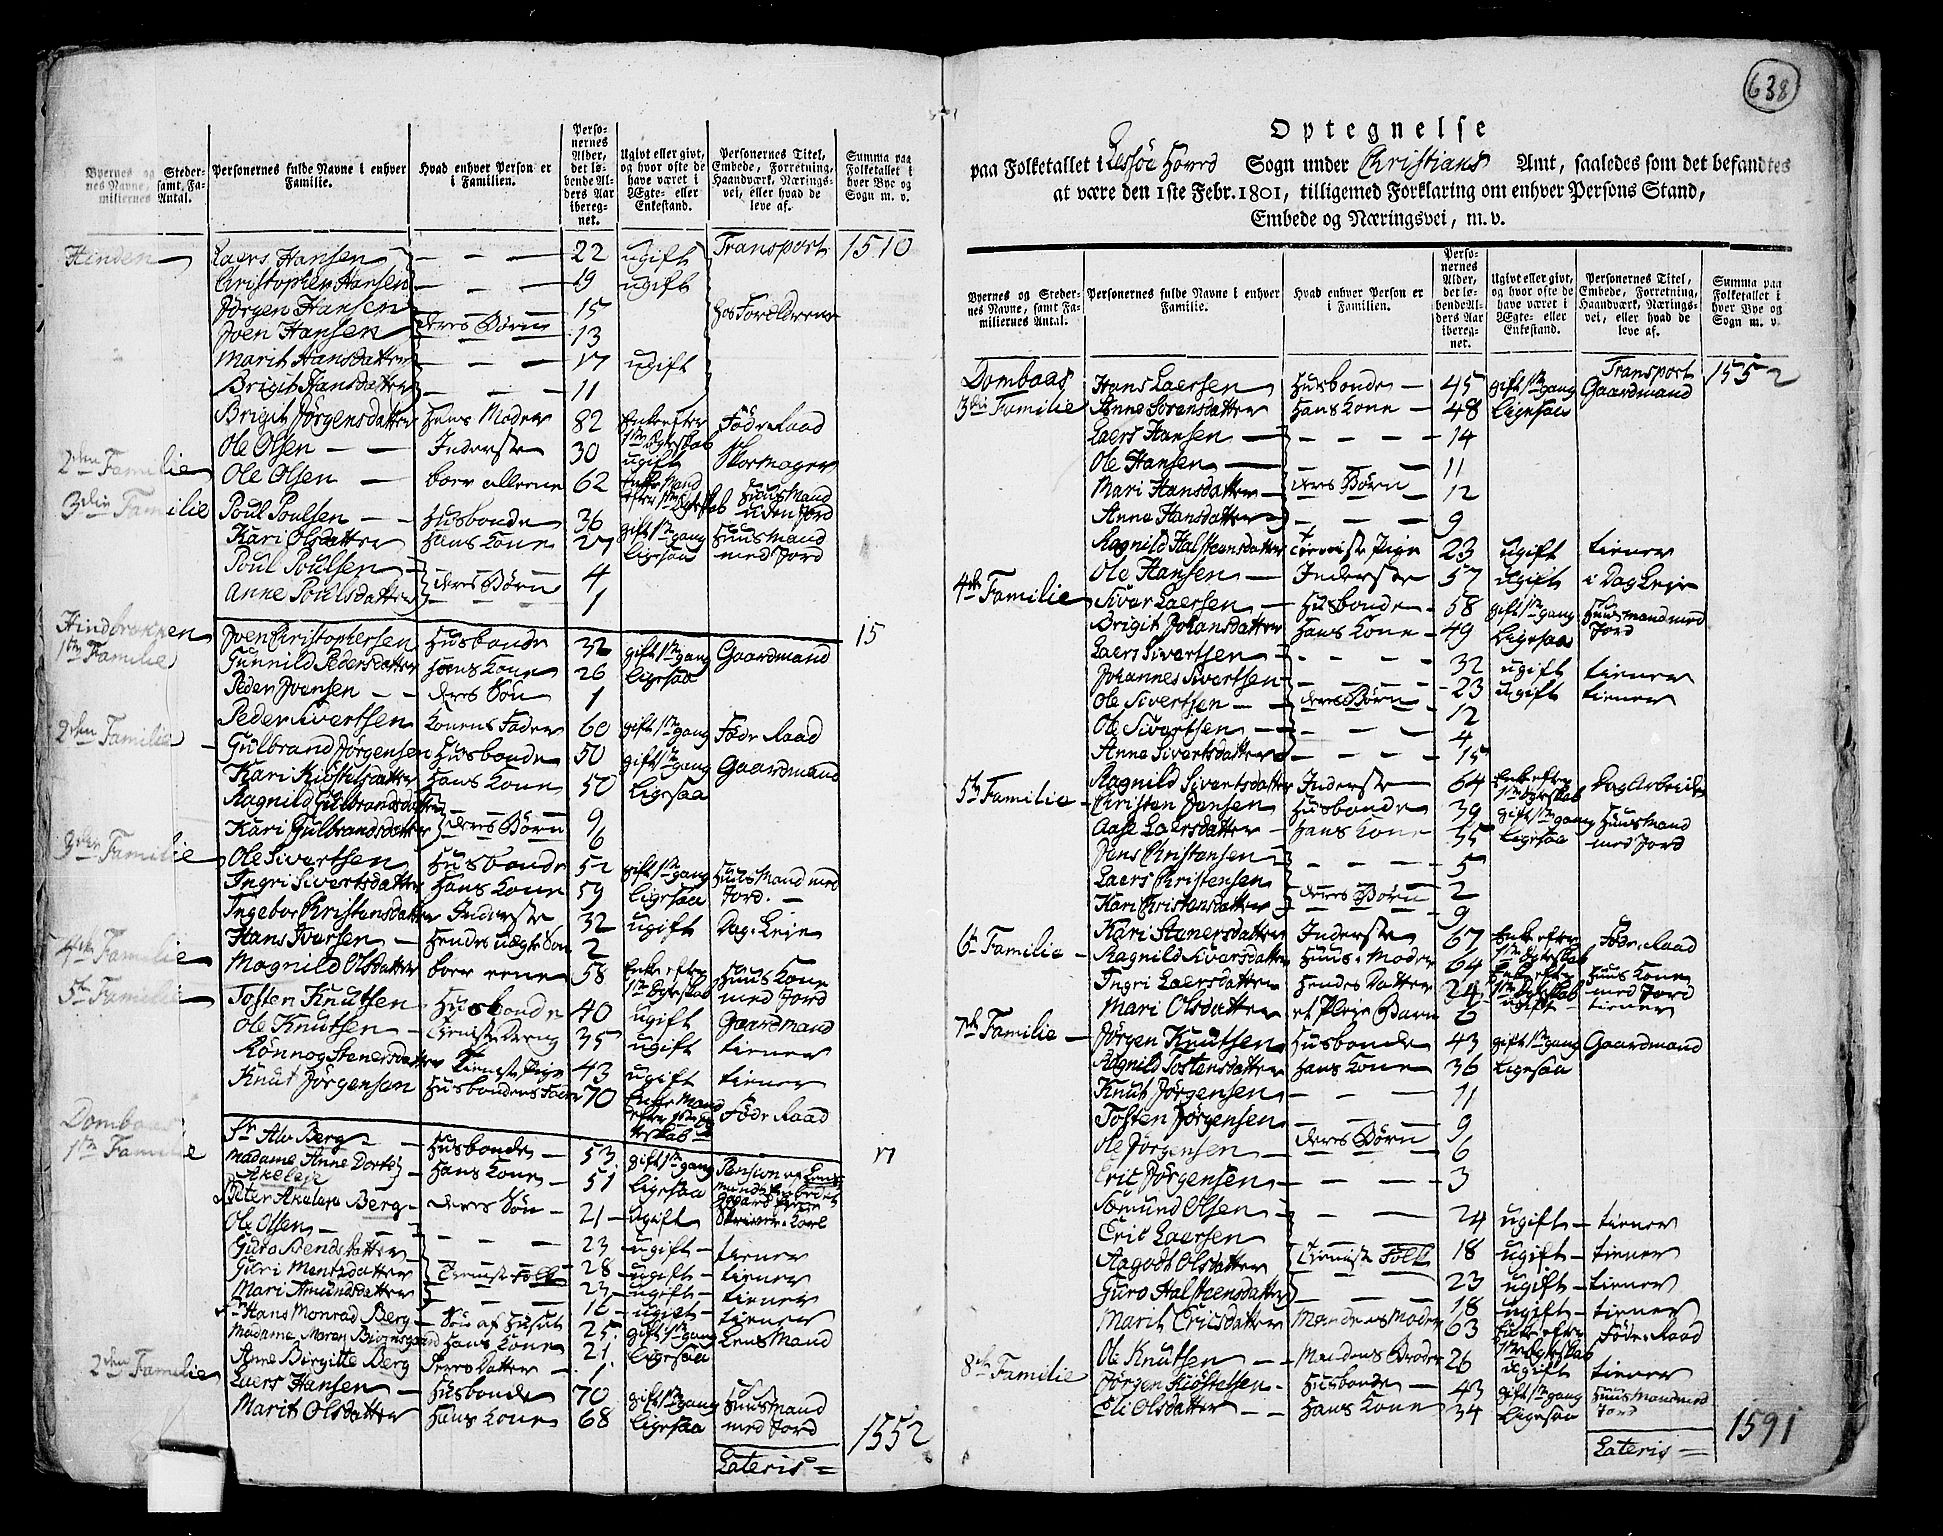 Byernes og Steder-
nes Navne, samt Fa-
miliernes Antal.
Personernes fulde Navne i enhver Familie.
Hvad enhver Person er i Familien.
Perso-
nernes
Alder,
det lø-
bende Al-
ders Aar
ibereg-
net.
Ugivt eller givt,
og hvor ofte de
have været i
Ægte- eller
Enkestand.
Personernes Titel,
Embede, Forretning,
Haandværk, Nærings-
vei, eller hvad de
leve af.
Summa paa
Folketallet i
hver Bye og
Sogn m. v.
Hinden Laers Hansen 22 ugift Transport 1510
Christopher Hansen 19 ugift
Jørgen Hansen 15 hos Foreldrene
Joen Hansen deres Børn 13
Marit Hansdatter 17 ugift
Brigit Hansdatter 11
Brigit Jørgensdatter Hans Moder 82 Enke efter 1te Ægteskab Føde Raad
2den Familie Ole Olsen Inderste 30 ugift Skomager
Ole Olsen boer alleene 62 Enke Mand efter 1te Ægteskab Huus Mand uden Jord
3die Familie Poul Poulsen Husbonde 36 gift 1te gang Huus Mand
Kari Olsdatter Hans Kone 27 Ligesaa med Jord
Poul Poulsen 4
Anne Poulsdatter deres Børn 1
Hindbrækken 15
1te Familie Joen Christophersen Husbonde 32 gift 1te gang Gaardmand
Gunnild Pedersdatter Hans Kone 26 Ligesaa
Peder Joensen deres Søn 1
Peder Sivertsen Konens Fader 60 gift 1te gang Føde Raad
2den Familie Gulbrand Jørgensen Husbonde 50 gift 1te gang Gaardmand
Kari Kiøstelsdatter Hans Kone 50 Ligesaa
Ragnild Gulbrandsdatter 9
Kari Gulbrandsdatter deres Børn 6
3die Familie Ole Sivertsen Husbonde 52 gift 1te gang Huus Mand med
Ingri Sivertsdatter Hans Kone 59 Ligesaa Jord.
Ingebor Christansdatter Inderste 32 ugift Dag Leje
Hans Ivarsen Hendes uægte Søn 2
4de Familie Magnild Olsdatter boer eene 58 Enke efter 1te Ægteskab Huus Kone med Jord
5te Familie Tosten Knutsen Husbonde 40 ugift Gaardmand
Ole Knutsen Tieniste Dreng 35 ugift tiener
Rønnog Stenersdatter Tieniste Pige 43 ugift tiener
Knut Jørgensen Husbondens Fader 70 Enke Mand efter 1te Ægteskab Føde Raad
Dombaas 17
1te Familie Sr. Alv Berg Husbonde 53 gift 1te gang
Madame Anne Dorte Akeleje Hans Kone 51 Ligesaa
Peter Akeleje Berg deres Søn 21 ugift Skriver Karl
Ole Olsen 23 ugift tiener
Guro Bendsdatter 28 ugift tiener
Guri Mentsdatter Tieniste Folk 23 ugift tiener
Mari Amundsdatter 16 ugiet tiener
Sr. Hans Monrad Berg Søn af Huset 25 gift 1te gang Lens Mand
Madame Maren Hans Kone 21 Ligesaa
Anne Birgitte Berg Datter 1
2den Familie Laers Hansen Husbonde 70 gift 1te gang Huus Mand
Marit Olsdatter Hans Kone 68 Ligesaa med Jord 1552
Lateris
638
Optegnelse
paa Folketallet i Lessøe Hoved Sogn under Christians Amt, saaledes som det befandtes
at være den 1ste Febr. 1801, tilligemed Forklaring om enhver Persons Stand,
Embede og Næringsvei, m. v.
Byernes og Steder-
nes Navne, samt Fa-
miliernes Antal.
Personernes fulde Navne i enhver Familie.
Hvad enhver Person er i Familien.
Perso-
nernes
Alder,
det lø-
bende Al-
ders Aar
ibereg-
net.
Ugivt eller givt,
og hvor ofte de
have været i
Ægte- eller
Enkestand.
Personernes Titel,
Embede, Forretning,
Haandværk, Nærings-
vei, eller hvad de
leve af.
Summa paa
Folketallet i
hver Bye og
Sogn m. v.
Transport 1552
Dombaas Hans Laersen Husbonde 45 gift 1te gang Gaardmand
3die Familie Anne Sorensdatter Hans Kone 48 Ligesaa
Laers Hansen 14
Ole Hansen 11
Mari Hansdatter deres Børn 12
Anne Hansdatter 9
Ragnild Halsteensdatter Tieniste Pige 23 ugift tiener
Ole Hansen Inderste 57 ugift i Dag Leje
4de Familie Sivar Laersen Husbonde 58 gift 1te gang Huusmand med
Brigit Johansdatter Hans Kone 49 Ligesaa Jord
Laers Sivertsen 32 ugift tiener
Johannes Sivertsen 23 ugift tiener
Ole Sivertsen deres Børn 12
Ole Sivertsen 4
Anne Sivertsdatter 15
Ragnild Sivertsdatter Inderste 64 Enke efter 1te Ægteskab Dag Arbeide
5te Familie Christen Jensen Husbonde 39 gift 1te gang Huus Mand
Aase Laersdatter Hans Kone 35 Ligesaa med Jord
Jens Christansen 5
Laers Christensen 2
Kari Christansdatter deres Børn 9
Kari Stenersdatter Inderste 67 Enke efter 1te Ægteskab Føde Raad
6te Familie Ragnild Sivarsdatter Huus Moder 64 Enke efter 1te Ægteskab Huus Kone med Jord
Ingri Laersdatter Hendes Datter 24 ugift tiener
Mari Olsdatter et Pleje Barn 6
7de Familie Jørgen Knutsen Husbonde 43 gift 1te gang Gaardmand
Ragnild Tostensdatter Hans Kone 36 Ligesaa
Knut Jørgensen 11
Tosten Jørgensen 9
Ole Jørgensen deres Børn 6
Eric Jørgensen 3
Somund Olsen 24 ugift tiener
Eric Laersen 18 ugift tiener
Aagodt Olsdatter Tieniste Folk 23 ugift tiener
Guro Halsteensdatter 18 ugift tiener
Marit Ericsdatter Mandens Moder 63 Enke efter 1te Ægteskab Føde Raad
Ole Knutsen Mandens Broder 26 ugift tiener
8de Familie Jørgen Kiøstelsen Husbonde 43 gift 1te gang Huus Mand med
Eli Olsdatter Hans Kone 34 Ligesaa Jord 1591
Lateris